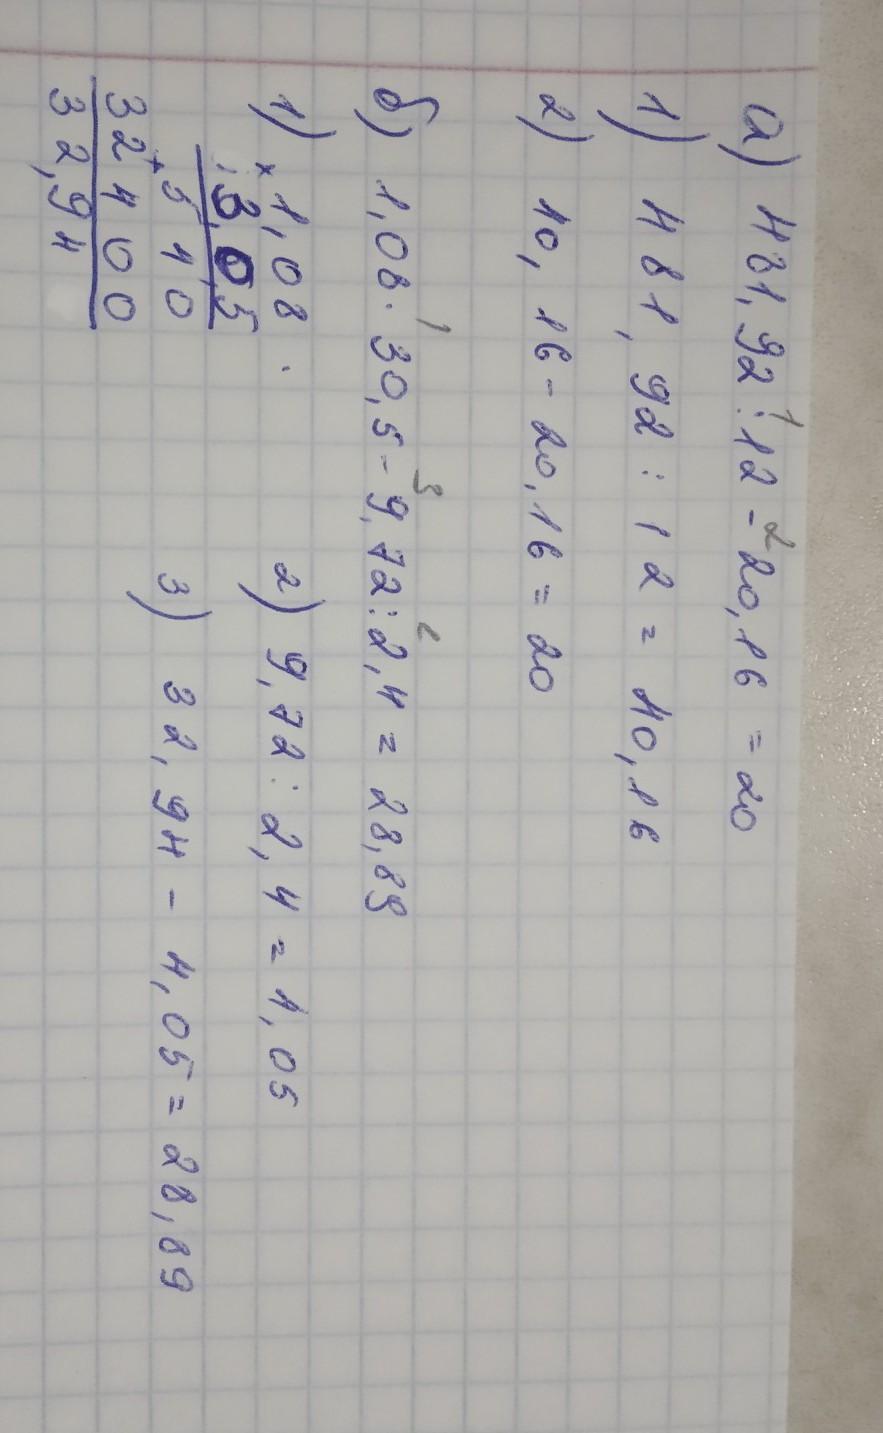 1 2
а) 481,92 : 12 - 20,16 = 20
1) 481,92 : 12 = 40,16
2) 40,16 - 20,16 = 20
1 3 2
б) 1,08 · 30,5 - 9,72 : 2,4 = 28,89
1) × 1,08
30,5
+ 540
32400
32,94
2) 9,72 : 2,4 = 4,05
3) 32,94 - 4,05 = 28,89